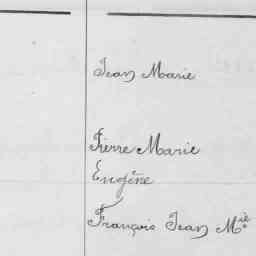 Jean Marie
Pierre Marie
Eugène
François Jean Mie